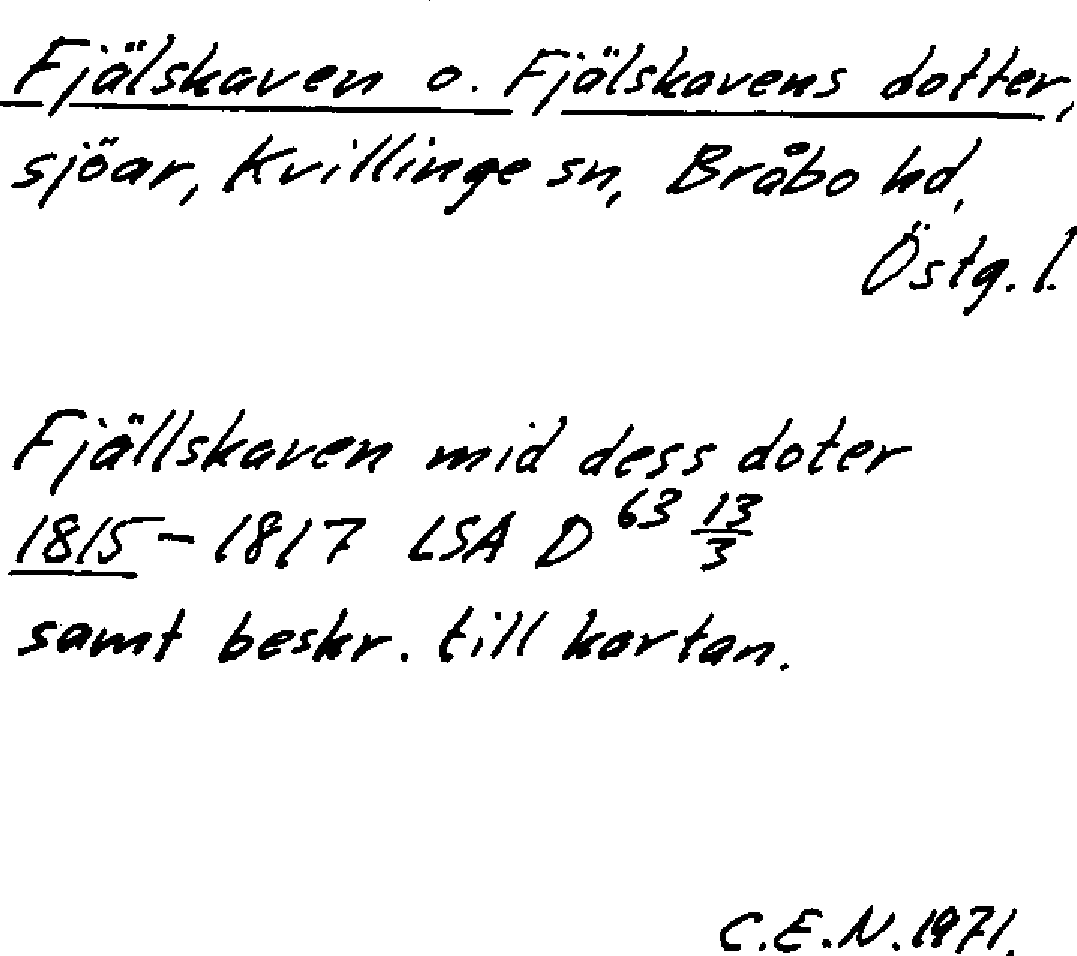 Fjälskaven o. Fjälskavens dotter,
sjöar, Kvillinge sn, Bråbo hd,
Östg. l.
Fjällskaven mid dess doter
1815 - 1817 LSA D 63 13/3
samt beskr. till kartan.
C.E.N. 1971.